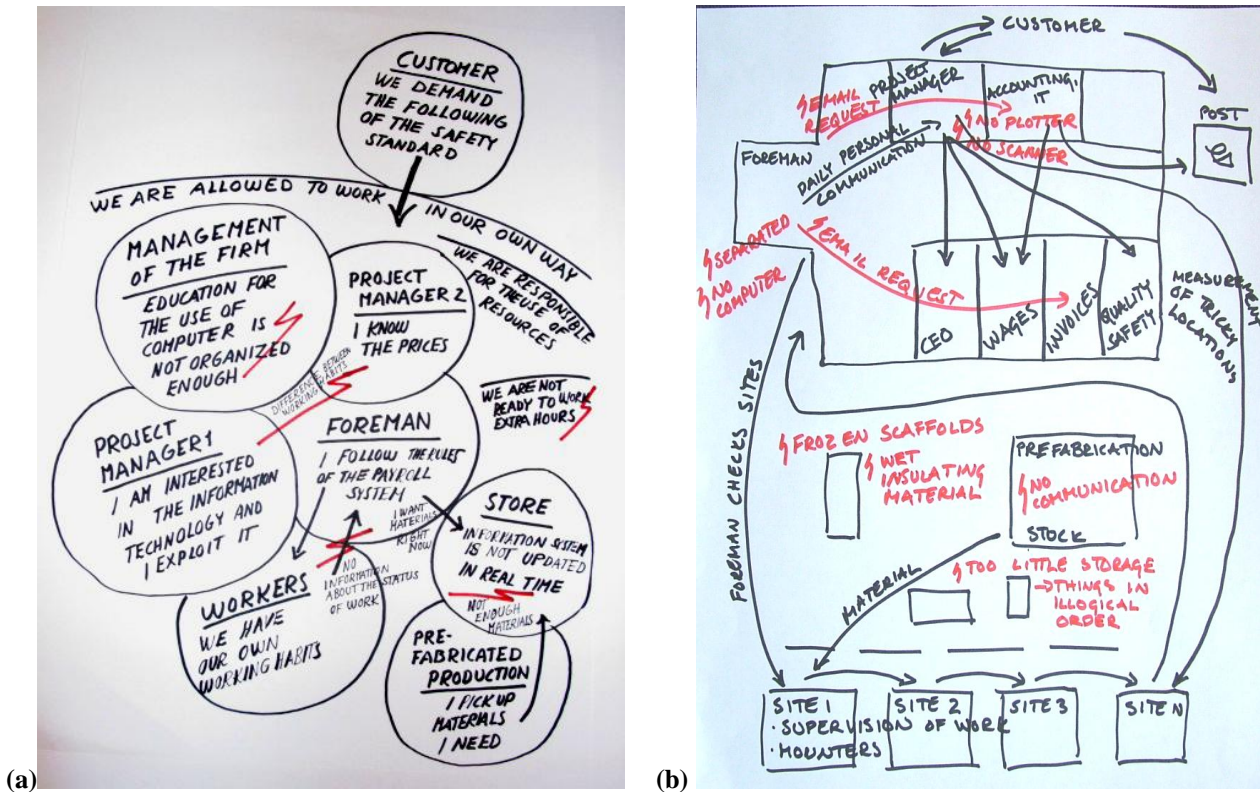 CUSTOMER
WE DEMAND
THE FOLLOWING
OF THE SAFETY
STANDARD
WE ARE ALLOWED TO WORK IN OUR OWN WAY
WE ARE RESPONSIBLE
FOR THE USE OF
RESOURCES
MANAGEMENT
OF THE FIRM
EDUCATION FOR
THE USE OF
COMPUTER IS
NOT ORGANIZED
ENOUGH
PROJECT
MANAGER 2
I KNOW
THE PRICES
DIFFERENCE BETWEEN
WORKING HABITS
WE ARE NOT
READY TO WORK
EXTRA HOURS
PROJECT
MANAGER 1
I AM INTERESTED
IN THE INFORMATION
TECHNOLOGY AND
I EXPLOIT IT
FOREMAN
I FOLLOW THE RULES
OF THE PAYROLL
SYSTEM
I WANT
MATERIALS
RIGHT
NOW
STORE
INFORMATION SYSTEM
IS NOT UPDATED
IN REAL TIME
NOT
ENOUGH
MATERIALS
NO
INFORMATION
ABOUT THE STATUS
OF WORK
WORKERS
WE HAVE
OUR OWN
WORKING HABITS
PRE-
FABRICATED
PRODUCTION
I PICK UP
MATERIALS
I NEED
(a)
CUSTOMER
PROJECT
MANAGER
ACCOUNTING,
IT
EMAIL
REQUEST
NO PLOTTER
NO SCANNER
POST
FOREMAN
DAILY PERSONAL
COMMUNICATION
SEPARATED
NO
COMPUTER
EMAIL REQUEST
CEO
WAGES
INVOICES
QUALITY
SAFETY
MEASUREMENT
OF TRICKY
LOCATIONS
FOREMAN CHECKS SITES
FROZEN SCAFFOLDS
WET
INSULATING
MATERIAL
PREFABRICATION
NO
COMMUNICATION
STOCK
MATERIAL
TOO LITTLE STORAGE
→THINGS IN
ILLOGICAL
ORDER
SITE 1
· SUPERVISION OF WORK
· MOUNTERS
SITE 2
SITE 3
SITE N
(b)